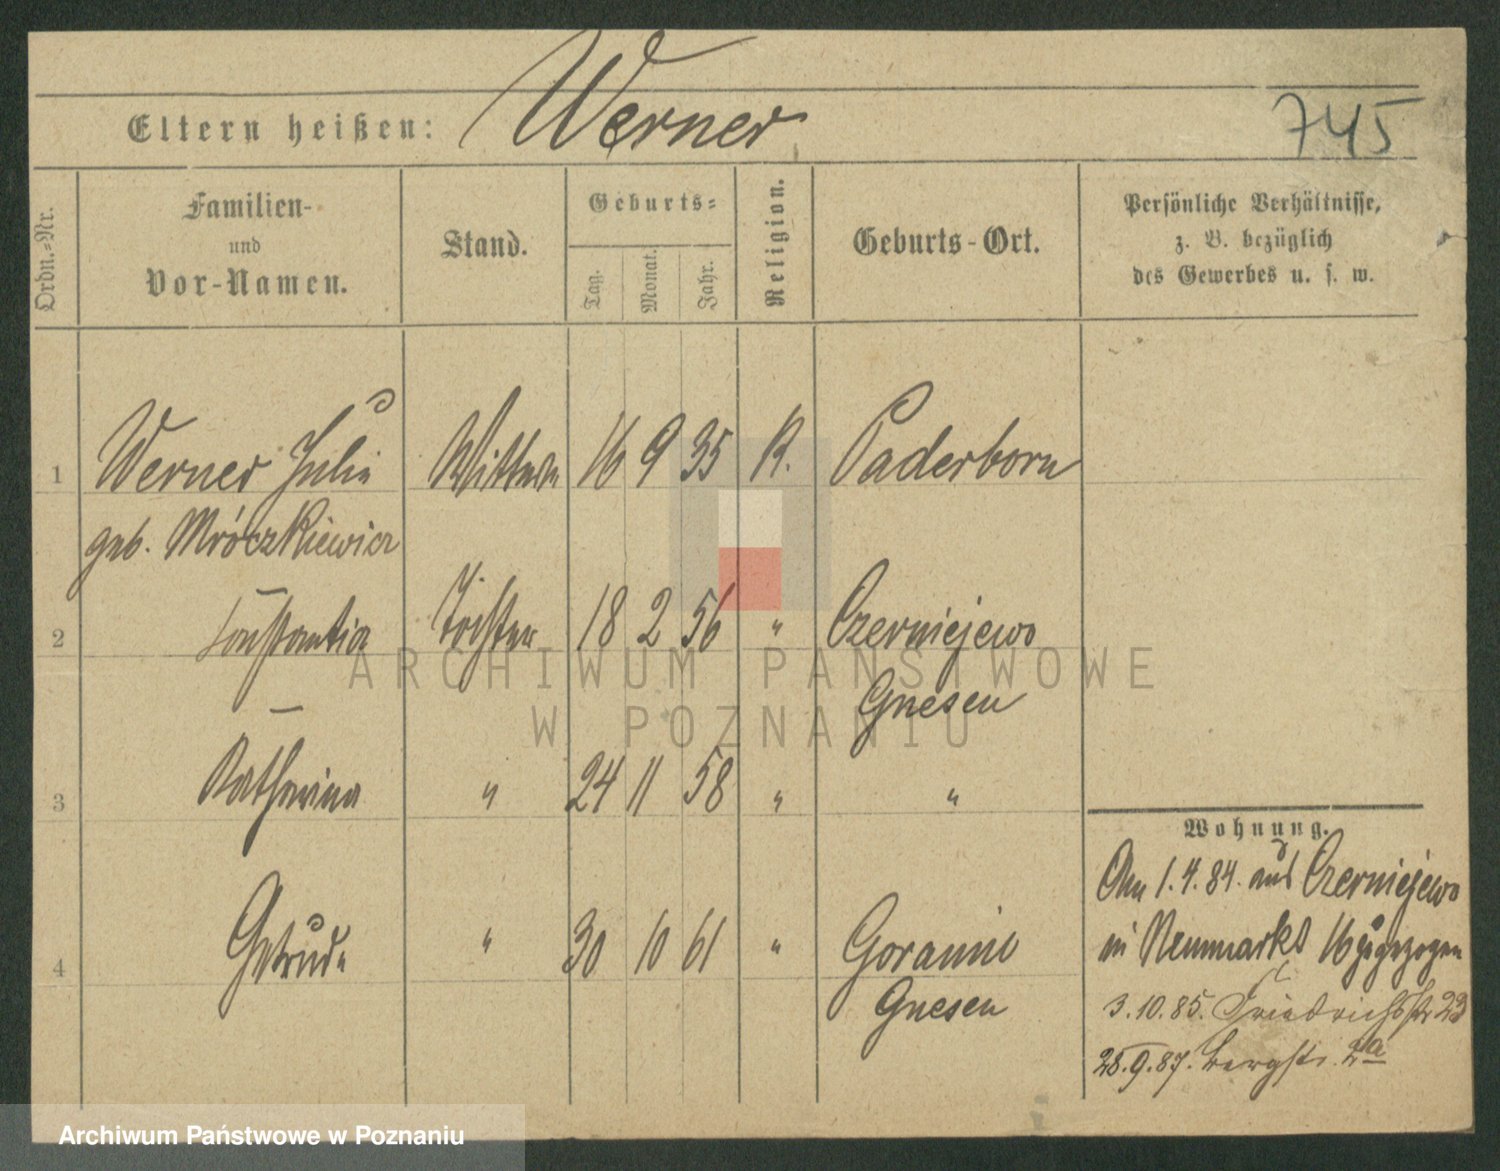 Eltern heißen: Werner
745
Ordn.=Nr.
Familien-
und
Vor-Namen.
Stand.
Geburts=
Tag.
Monat.
Jahr.
Religion.
Geburts-Ort.
Persönliche Verhältnisse,
z. B. bezüglich
des Gewerbes u. s. w.
1 Werner Julie Wittwe 16 9 35 K. Paderborn
geb. Mróczkiewicz
2 Constantia Tochter 18 2 56 " Czerniejewo
Gnesen
3 Katharina " 24 11 58 " "
4 Gertrude " 30 10 61 "
Gnesen
Wohnung.
Am 1.4.84. aus Czerniejewo
in Neumarkt 16 zugezogen
3.10.85. Friedrichsstr 23
28.9.87. Bergstr. 2a
ARCHIWUM PAŃSTWOWE
W POZNANIU
Archiwum Państwowe w Poznaniu